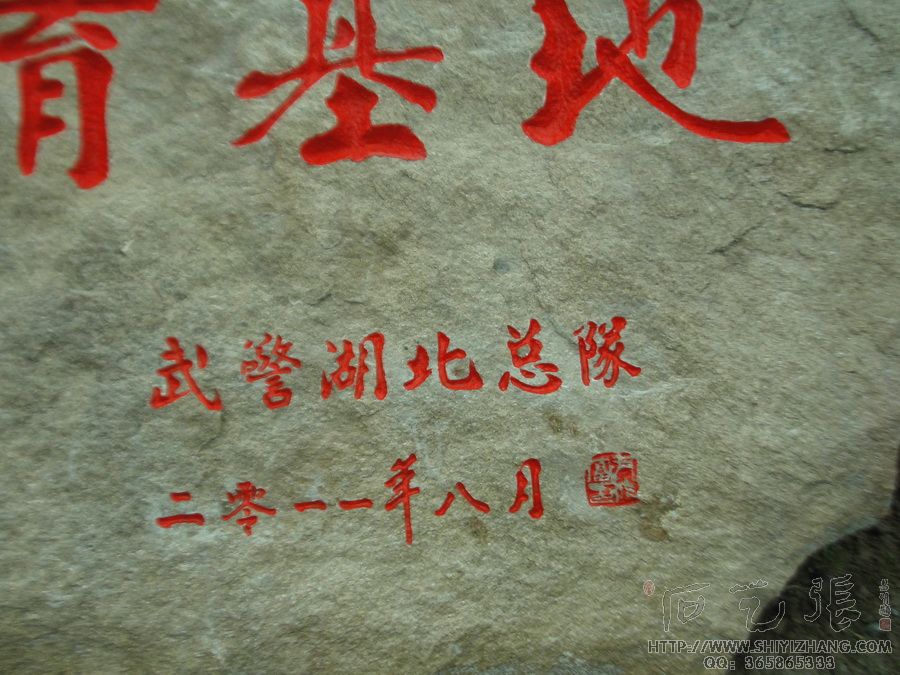 育基地
武警湖北总队
二零一一年八月
石艺張
HTTP://WWW.SHIYIZHANG.COM
QQ: 365865333